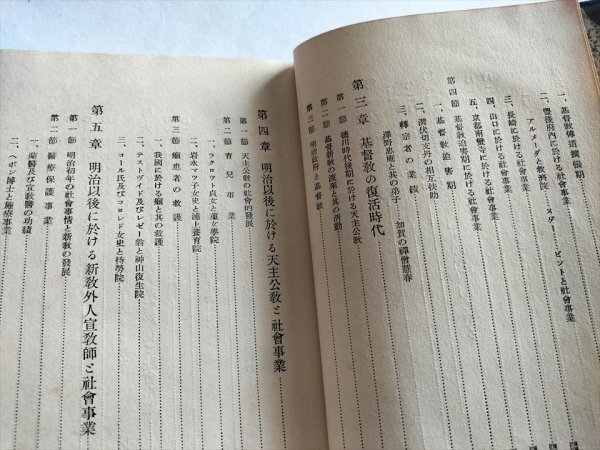 一、基督教傳道擴張期
二、豐後府內に於ける社會事業
アルメーダと救濟院
三、長崎に於ける社會事業
四、山口に於ける社會事業
五、京都南蠻寺に於ける社會事業
第四節 基督教迫害期
一、基督教迫害期に於ける社會事業
二、潛伏切支丹の相互扶助
三、轉宗者の業績
澤野忠庵と其の弟子 加賀の禪僧慧春
第三章 基督敎の復活時代
第一節 德川時代後期に於ける天主公敎
第二節 基督新敎の渡來と其の活動
第三節 明治政府と基督敎
第四章 明治以後に於ける天主公敎と社會事業
第一節 天主公敎の社會的發展
第二節 育兒事業
一、ラクロット貞女と童女學院
二、岩永マツ子女史と浦上養育院
第三節 癩患者の救護
一、我國に於ける癩と其の救護
二、テストヴイド及びレゼー翁と神山復生院
三、コール氏及びコロレド女史と待勞院
第五章 明治以後に於ける新敎外人宣敎師と社會事業
第一節 明治初年の社會事情と新敎の發展
第二節 醫療保護事業
一、蘭醫及び宣敎醫の功績
二、ボン博士と施療事業